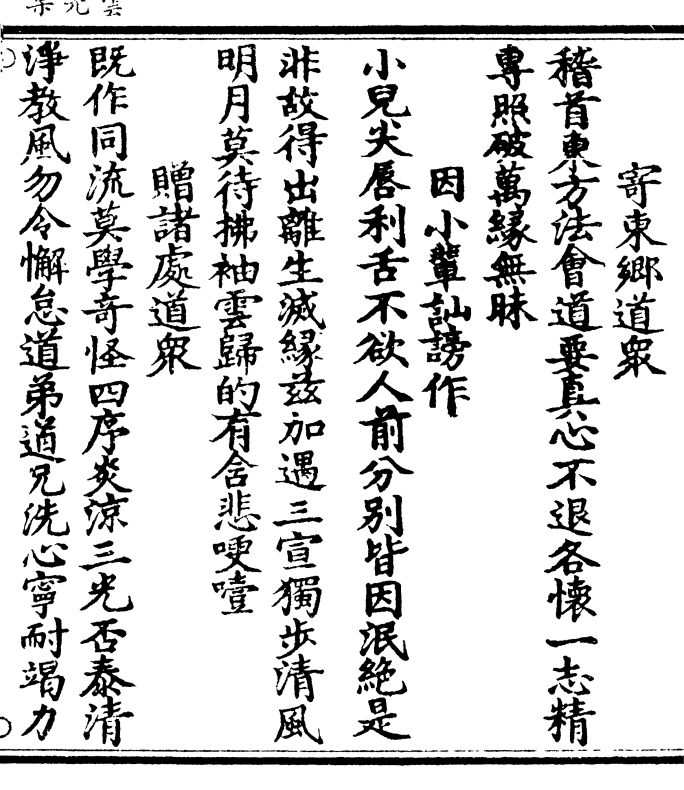 寄東鄉道眾
稽首東方法會道要真心不退各懷一志精
專照破萬緣無昧
因小輩訕謗作
小兒尖唇利舌不欲人前分別皆因泯絕是
非故得出離生滅緣茲加遇三宣獨步清風
明月莫待拂袖雲歸的有含悲哽噎
贈諸處道眾
既作同流莫學奇怪四序炎涼三光否泰清
淨教風勿令懈怠道弟道兄洗心寧耐竭力